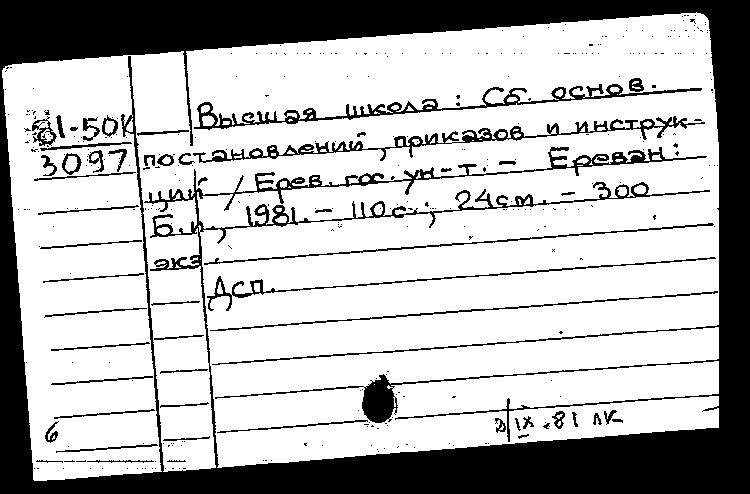 81-50К
3097
Высшая школа : Сб. основ.
постановлений, приказов и инструк-
ций / Ерев. гос. ун-т. – Ереван:
Б.и., 1981. – 110с.; 24см. – 300
экз.
Дсп.
6
IX .81 ЛК